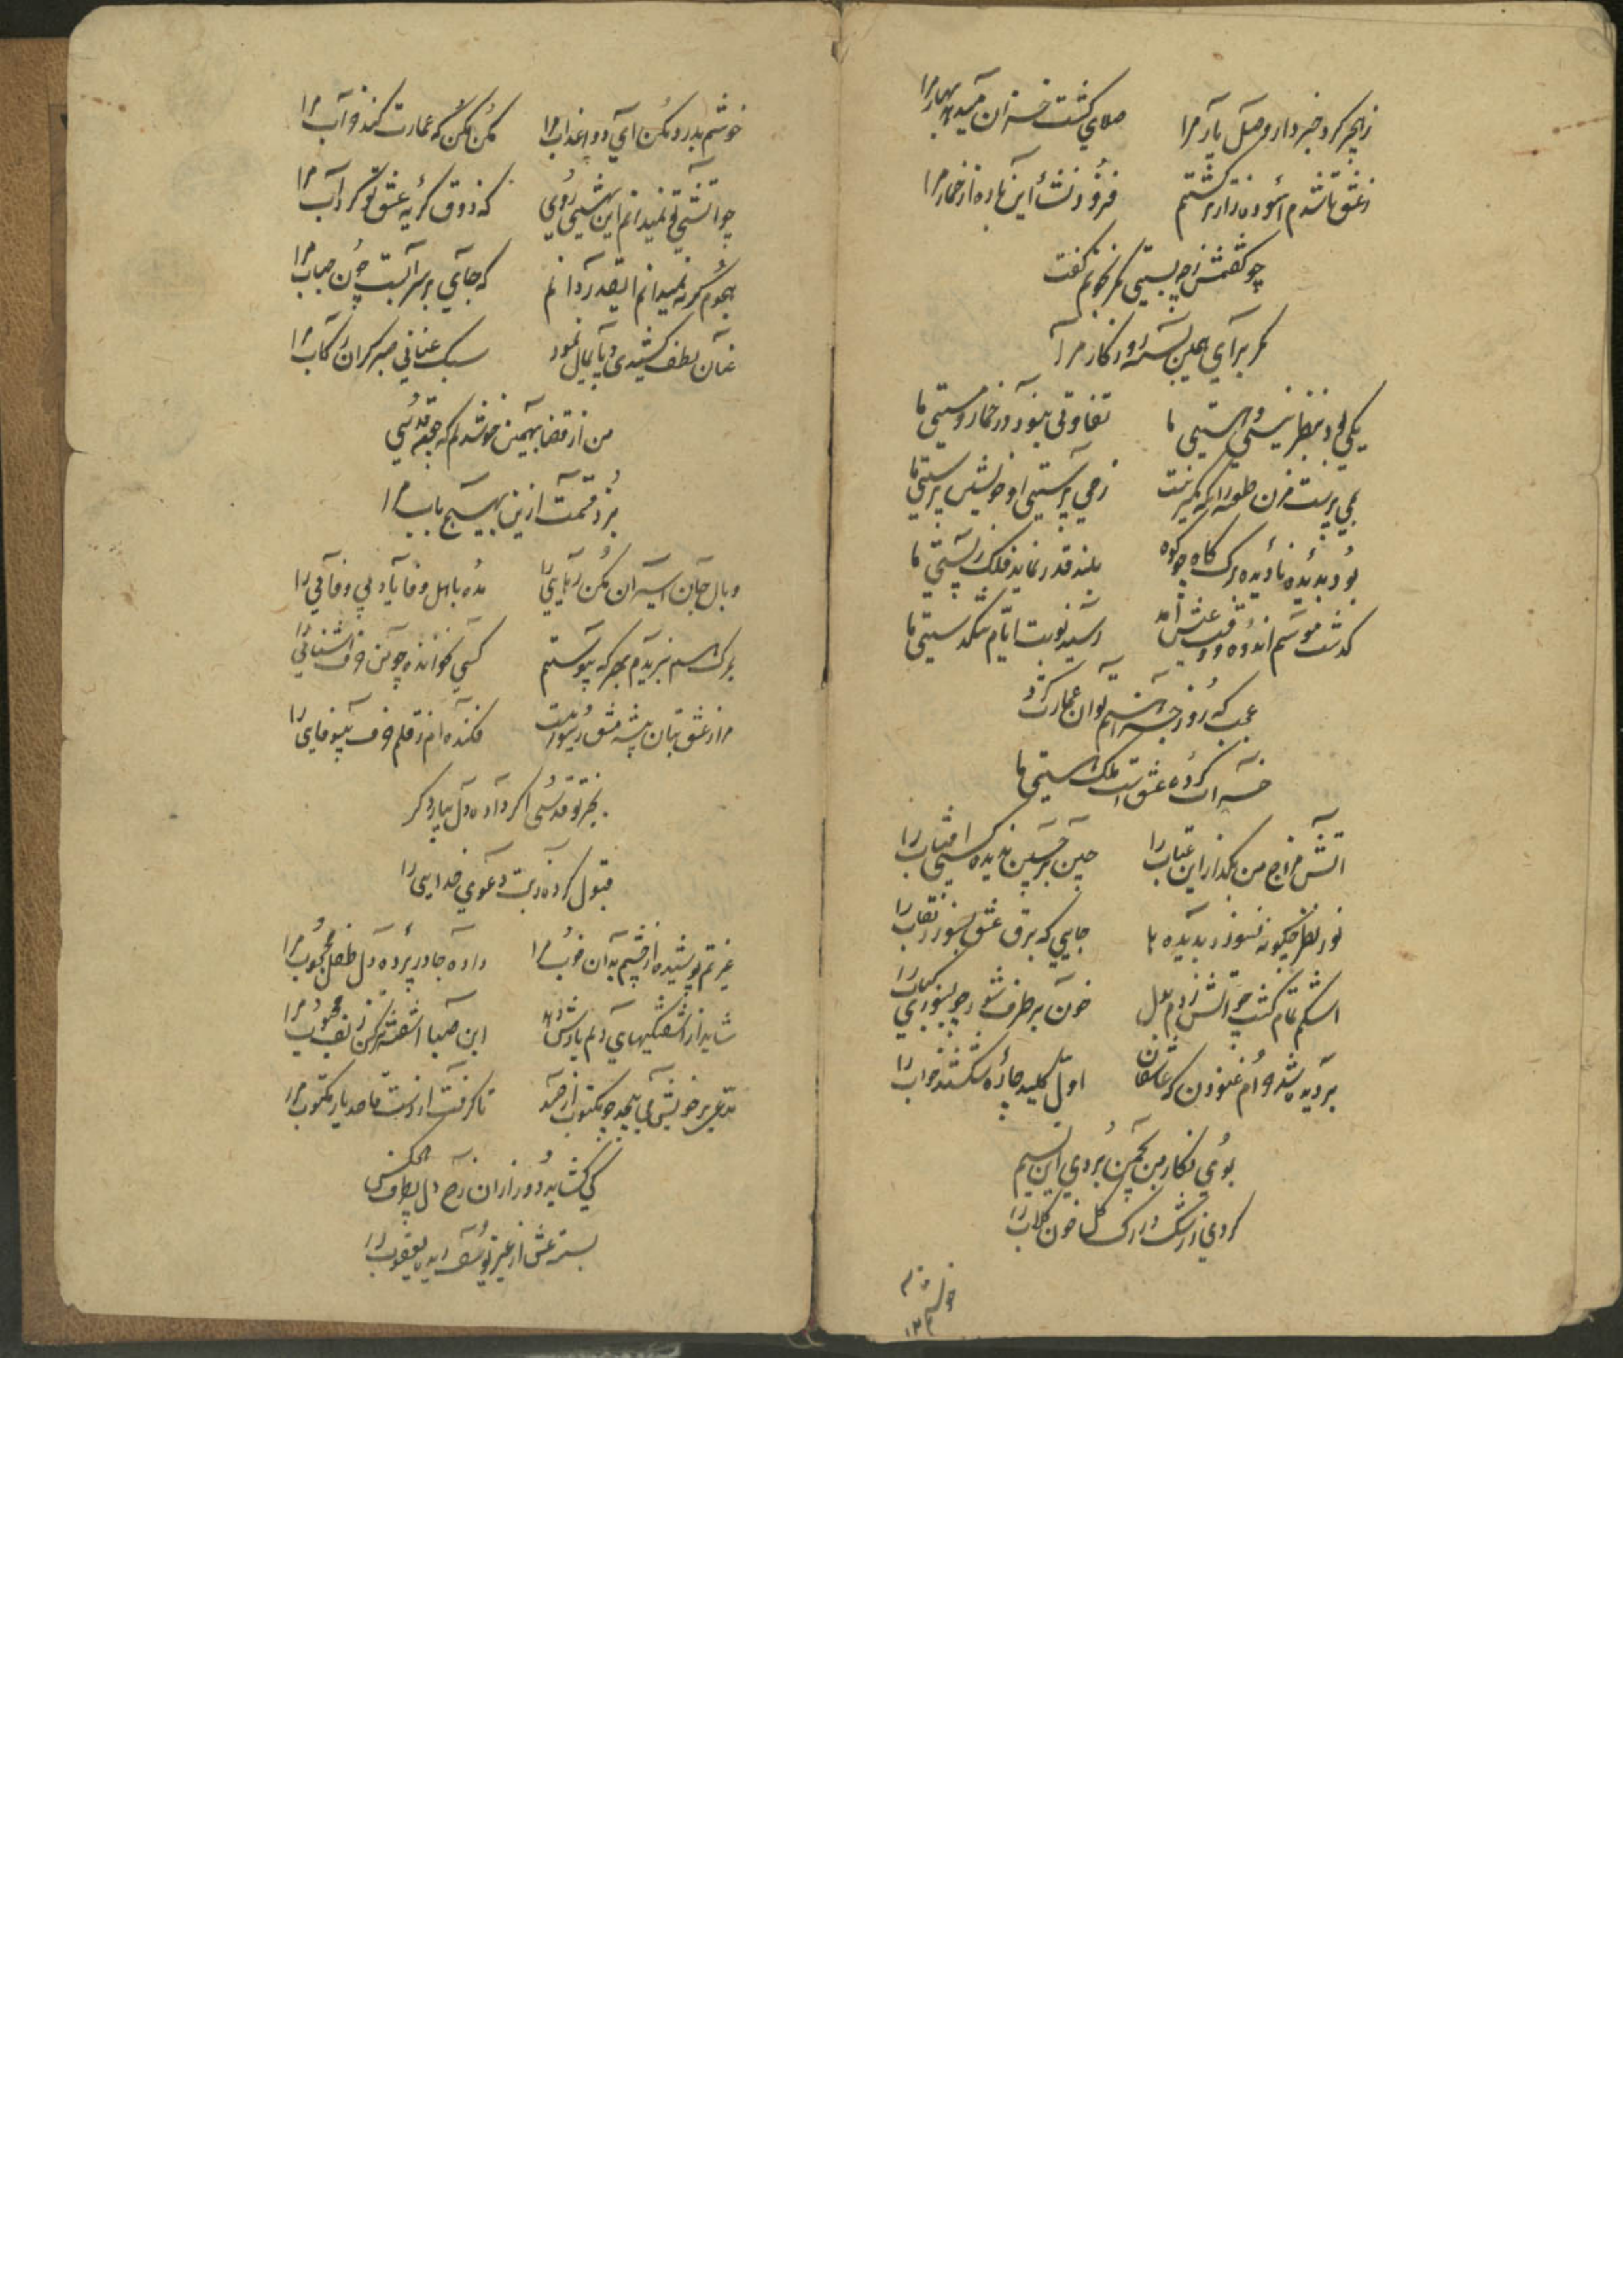 ز هجر کرد خبردار وصل یار مرا صلای گشت خزان میدهد بهار مرا
ز عشق تا شدم آسوده زارتر گشتم فزود نشأ این باده از خمار مرا
چو گفتمش ز چه بستی کمر بخونم گفت
کمر برای همین بسته روزگار مرا
یکی بود بنظر نیستی و هستی ما تفاوتی ننمود در خمار و مستی ما
بمی پرست مزن طعنه زمی پرستی او خویش پرستی ما
بود بدیده نادیده برک کاه چو کوه بلند قدر نماید فلک ز پستی ما
گذشت موسم اندوه و وقت عشق آمد رسید نوبت ایام تنگدستی ما
عجب که روز جزا هم توان عمارت کرد
خراب کرده عشق است ملک هستی ما
آتش مزاج من بگذار این عتاب را چین بر جبین ندیده کسی آفتاب را
نور نظر چگونه نسوزد بدیده‌ها جایی که برق عشق بسوزد نقاب را
اشکم تمام گشت چو آتش زدم بدل خون برطرف شود چو بسوزی کباب را
بر دیده شد حرام غنودن که عاشقان اول کلید چاره شکستند خواب را
بوی نگار من بچمن بردی ای نسیم
کردی ز رشک در رگ گل خون گلاب را
خوشم بدرد مکن ای دوا عذاب مرا مکن مکن که عمارت کند خراب مرا
چو آتشی تو نمیدانم این بهشتی روی که ذوق گریه عشق تو کرد آب مرا
هجوم گریه نمیدانم اینقدر دانم که جای بر سر آبست چون حباب مرا
عنان لطف کشیدی و پایمال نمود سبک عنانی صبر گران رکاب مرا
من از قضا بهمین خوشدلم که چو قدسی
نبرد قسمت ازین در بهیچ باب مرا
وبال جان اسیران مکن رهایی را مده باهل وفا یاد بی وفایی را
بمرگ هم نبریدم بهر که پیوستم کسی نخوانده چو من حرف آشنایی را
مرا ز عشق بتان پیشه مشق رسواییست فکنده‌ام ز قلم حرف پیوفایی را
بجز تو قدسی اگر داده دل بیار دگر
قبول کرده ز بت دعوی خدایی را
غیرتم پوشیده از چشم بدان خوب مرا داده جا در پرده دل طفل محجوب مرا
شاید از آشفتگیهای دلم یادش دهد ای صبا آشفته‌تر کن زلف محبوب مرا
مدعی بر خویش می پیچد چو مکتوب از حسد تا گرفت از دست قاصد یار مکتوب مرا
کی گشاید دور ازان رخ دل بطرف هیچکس
بسته عشق از غیر یوسف دیده یعقوب را